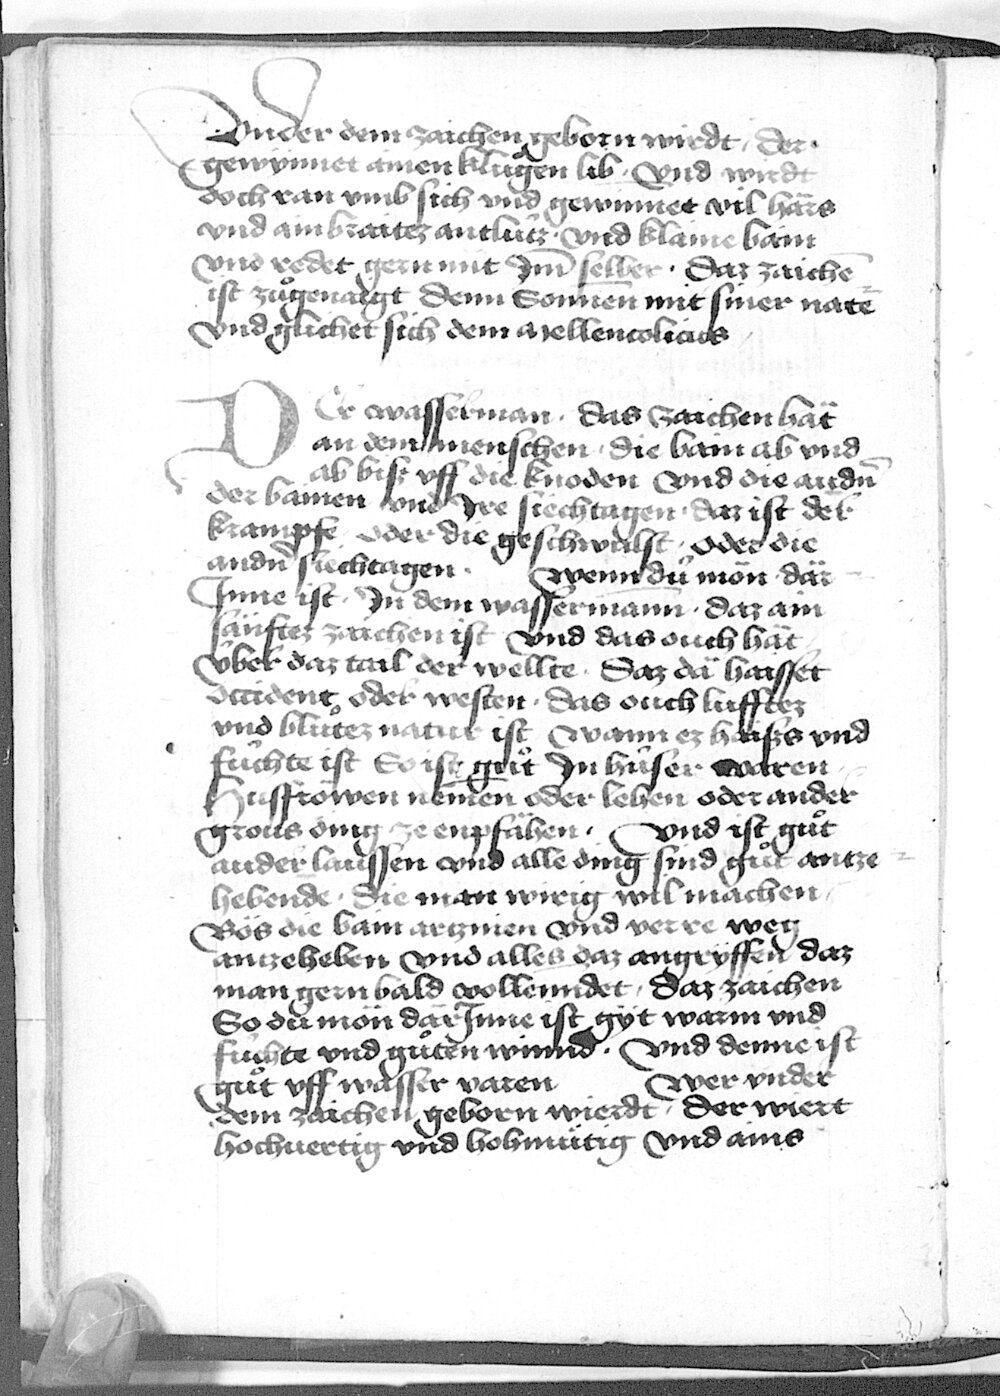 Vnder dem zaichen geborn wirdt · der ·
gewynnet ainen klůgen lib · Vnd wirdt
doch ran vmb sich vnd gewinnet vil härs
vnd ain braitez antlütz · vnd klaine bain
vnd redet gern mit Im̄ selber · Daz zaichē
ist zůgenaigt denn Sonnen mit siner natē
vnd glichet sich dem mellencolicus
DEr wasserman · das zaichen hät
an dem menschen · die bain ab vnd
ab bisz vff die knoden Vnd die andn̄
der bainen vnd Ire siechtagen · daz ist der
krampfe oder die geschwulst · oder die
andn̄ siechtagen · Wenn du mön där
Inne ist · In dem wassermann · daz ain
sänftez zaichen ist vnd das ouch hät
über daz tail der wellte · Daz dä haisset
occident oder westen · das ouch lufftez
vnd blůtez natur ist Wann ez haiss vnd
füchte ist So ist gůt In hüser varen
Husfröwen nemen oder lehen oder ander
gross ding ze enpfähen · Vnd ist gůt
ander laussen vnd alle ding sind gůt antze
hebende · die man wirig wil machen
Bös die bain artznien vnd verre weg
antzeheben vnd alles daz angryffen daz
man gern bald vollenndet · Daz zaichen
So du mön där Inne ist gyt warm vnd
füchte vnd gůten winnd · Vnd denne ist
gůt vff wasser varen Wer vnder
dem zaichen geborn wierdt · Der wiert
hochuertig vnd hohmütig Vnd ains